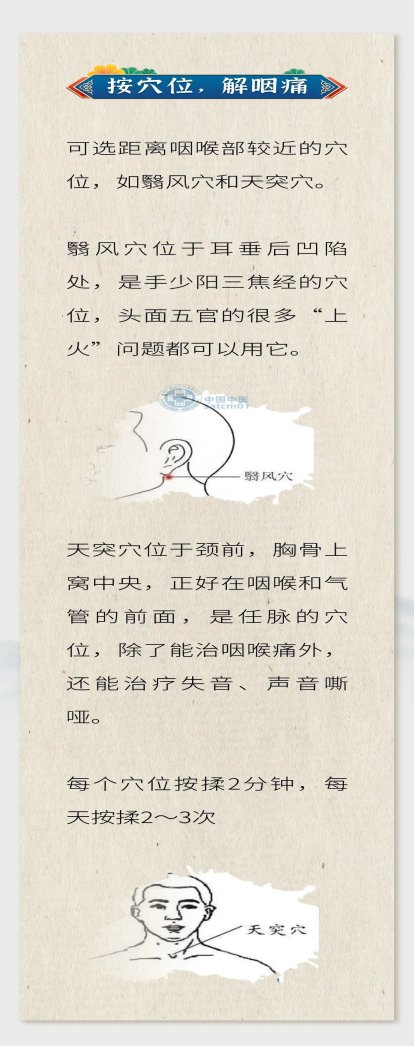 按穴位，解咽痛
可选距离咽喉部较近的穴
位，如翳风穴和天突穴。
翳风穴位于耳垂后凹陷
处，是手少阳三焦经的穴
位，头面五官的很多“上
火”问题都可以用它。
中国中医
satcm01
翳风穴
天突穴位于颈前，胸骨上
窝中央，正好在咽喉和气
管的前面，是任脉的穴
位，除了能治咽喉痛外，
还能治疗失音、声音嘶
哑。
每个穴位按揉2分钟，每
天按揉2～3次
天突穴